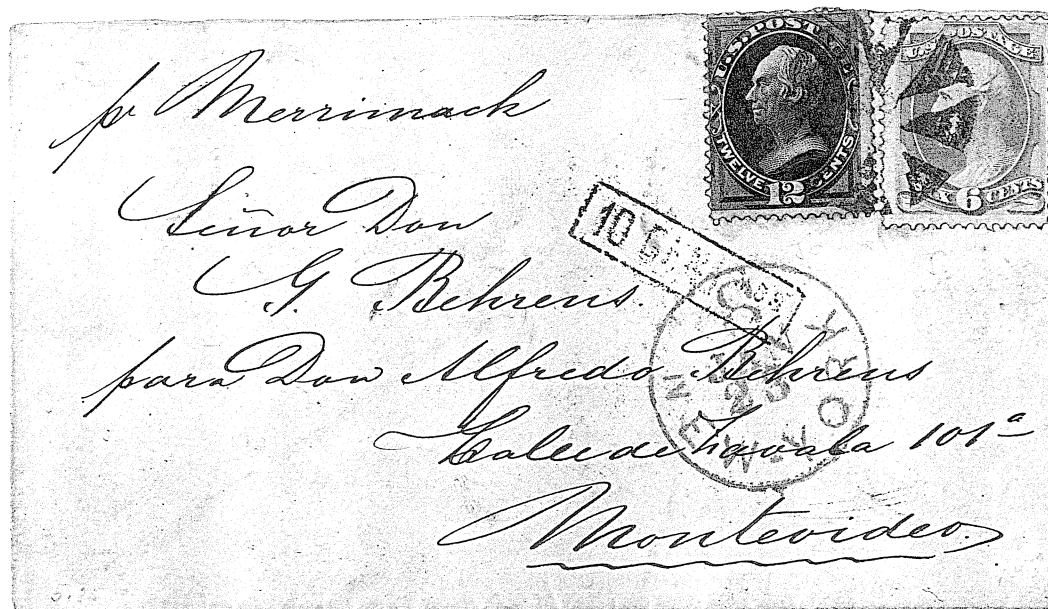 pr Merrimack
U.S. POSTAGE
TWELVE 12 CENTS
U.S. POSTAGE
SIX 6 CENTS
Señor Don
G. Behrens.
10
NEW YORK
JAN
23
para Don Alfredo Behrens
Calle de Zavala 101ª
Montevideo.